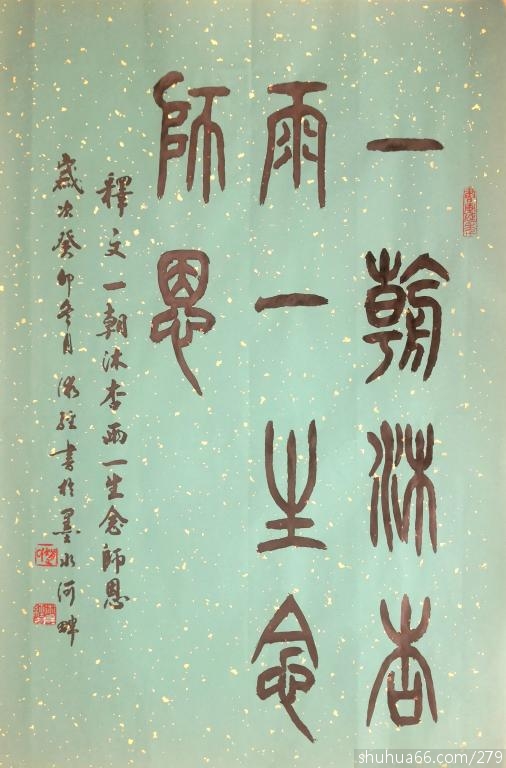 一朝沐杏
雨一生念
師恩
釋文一朝沐杏雨一生念師恩
歲次癸卯冬月 書於墨水河畔
shuhua66.com/279